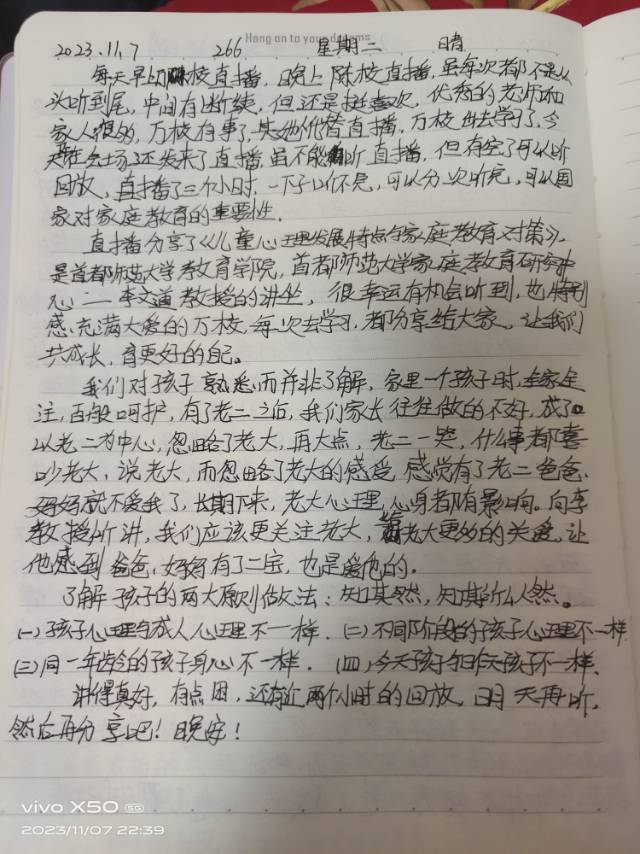 Hang on to your dreams
2023.11.7 266 星期二 晴
每天早上陈校直播,晚上陈校直播,虽每次都不是从
头听到尾,中间有断续,但还是挺喜欢,优秀的老师和
家人很多,万校有事了,其她伙伴替直播,万校出去学习了,今
天在会场还发来了直播,虽不能听直播,但有空了可以听
回放,直播了三个小时,一下子听不完,可以分次听完,可以国
家对家庭教育的重要性.
直播分享了《儿童心理发展特点与家庭教育对策》,
是首都师范大学教育学院,首都师范大学家庭教育研究中
心二一李文道教授的讲坐,很幸运有机会听到,也特别
感充满大爱的万校,每次去学习,都分享给大家,让我们
共成长,育更好的自己。
我们对孩子熟悉而并非了解,家里一个孩子时,全家全
注,百般呵护,有了老二之后,我们家长往往做的不好,成了
以老二为中心,忽略了老大,再大点,老二一哭,什么事都喜
吵老大,说老大,而忽略了老大的感受,感觉有了老二爸爸、
妈妈就不爱我了,长期下来,老大心理,心身都有影响。向李
教授所讲,我们应该更关注老大,给老大更多的关爱,让
他感到爸爸、妈妈有了二宝,也是爱他的.
了解孩子的两大原则做法:知其然,知其所以然。
(一)孩子心理与成人心理不一样.(二)不同阶段的孩子心理不一样
(三)同一年龄的孩子身心不一样.(四)今天孩子和昨天孩子不一样、
讲得真好,有点困,还有近两个小时的回放,明天再听,
然后再分享吧!晚安!
vivo X50 5G
2023/11/07 22:39